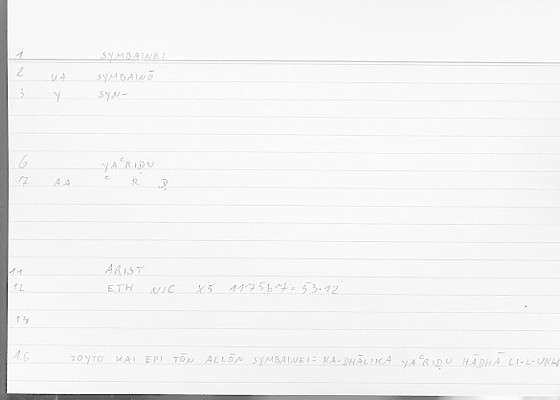 1 SYMBAINEI
2 VA SYMBAINŌ
3 Y SYN-
6 YAʿRIḌU
7 AA ʿ R Ḍ
11 ARIST
12 ETH NIC X5 1175b7 = 53.12
14
16 TOYTO KAI EPI TŌN ALLŌN SYMBAINEI = KA-DHĀLIKA YAʿRIḌU HĀDHĀ LI-L-UKH